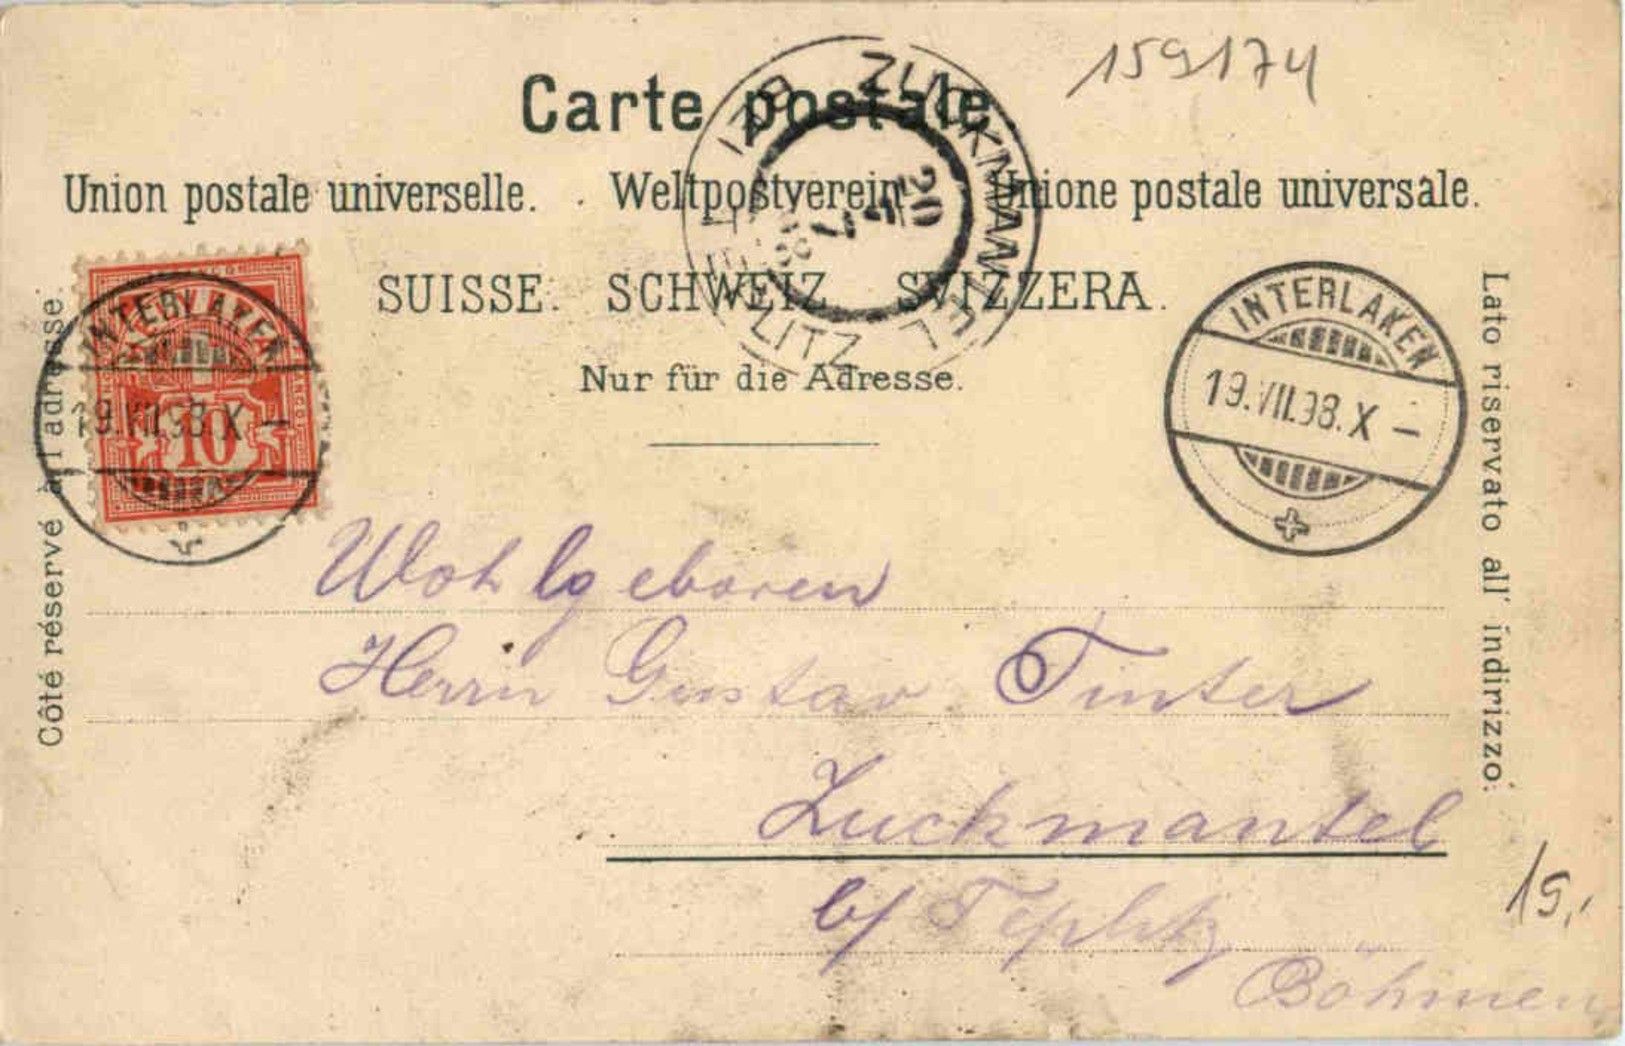 159174
Carte postale
Union postale universelle. Weltpostverein. Unione postale universale.
SUISSE. SCHWEIZ SVIZZERA.
Nur für die Adresse.
ZUCKMANTEL BEI TEPLITZ
20
7
98
INTERLAKEN
19.VII.98.X –
INTERLAKEN
19.VII.98.X –
FRANCO
10
Côté réservé à l'adresse.
Lato riservato all' indirizzo.
Wohlgeboren
Herrn Gustav Tinter
Zuckmantel
b/ Teplitz
Böhmen
15,-